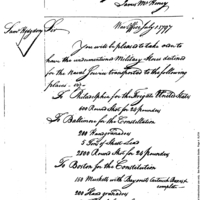 James McHenry
Saml Hodgdon
Sir
War Office July 1797
You will be pleased to take order to have
the undermentioned Military Stores destined
for the Naval Service transported to the following
places. viz.
To Philadelphia for the Frigate United States
600 Round Shot for 24 pounders
To Baltimore for the Constellation
200 Hand grenades
5 Tons of Sheet Lead
2300 Round Shot for 24 pounders
To Boston for the Constitution
150 Muskets with Bayonets & Cartouch Boxes
complete
200 Hand grenades